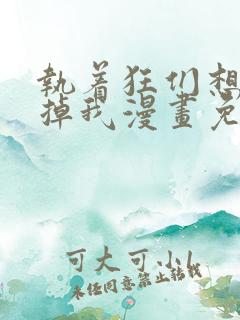 執着狂们想
掉我漫畫免
可大可小l
未经同意禁止转载